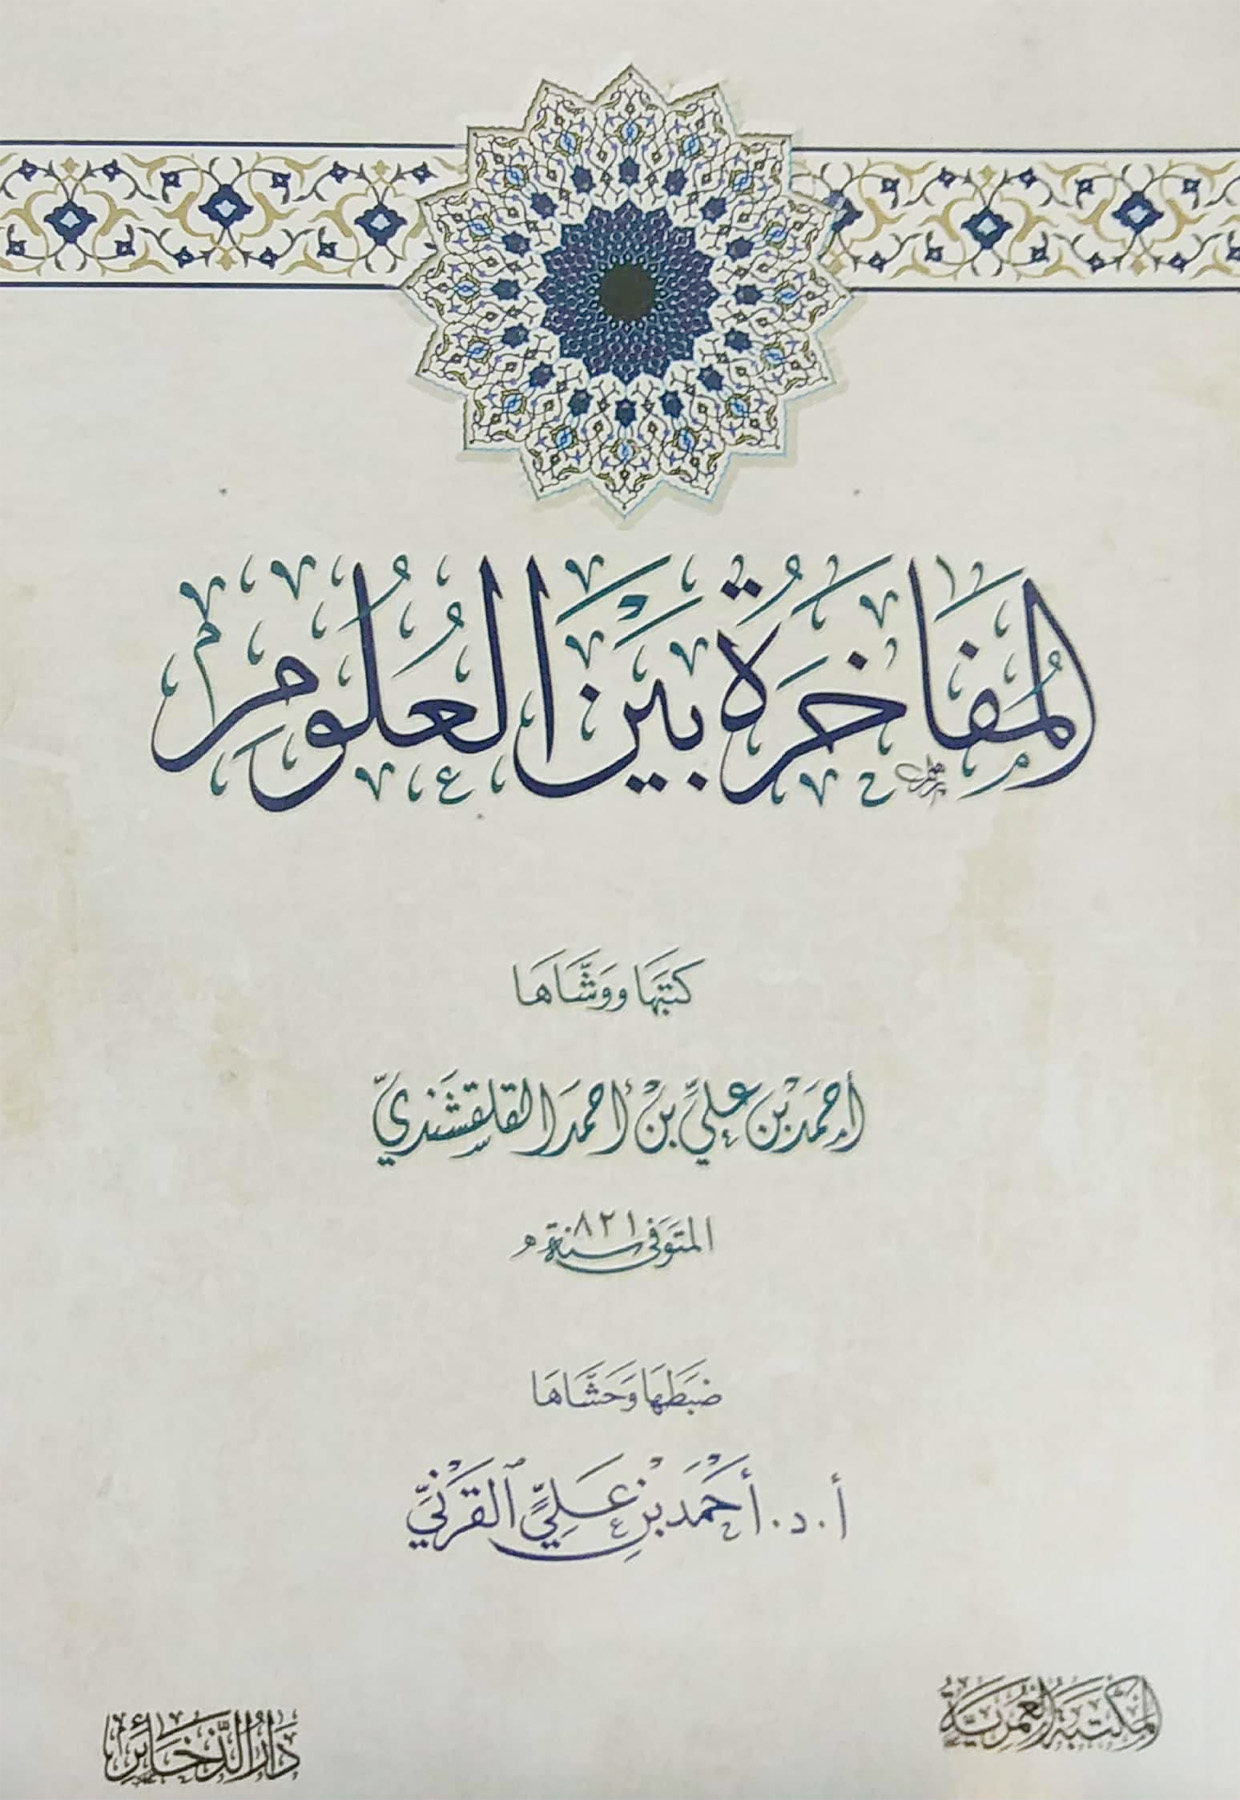 المُفَاخَرَةُ بَيْنَ العُلُومِ
كتبَهَا ووَشَّاهَا
أحمَد بْن عليِّ بنْ أحمَد القلقشَنديّ
المتوَفى سنة ٨٢١ هـ
ضبَطَهَا وَحَشَّاهَا
أ. د. أَحْمَد بْنِ عَلِيٍّ القَرْنِيّ
المكْتَبَةُ العُمَرِيَّةُ
دَارُ الذَّخَائِر